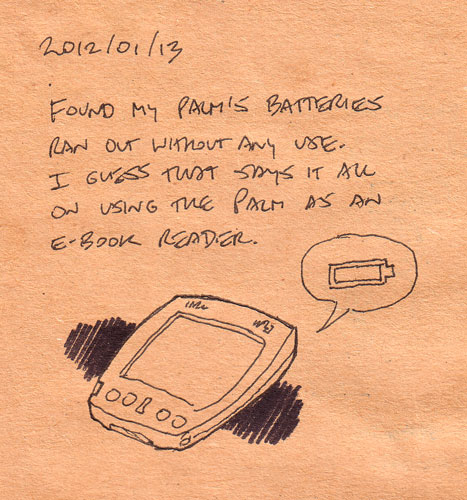 2012/01/13
FOUND MY PALM'S BATTERIES
RAN OUT WITHOUT ANY USE.
I GUESS THAT SAYS IT ALL
ON USING THE PALM AS AN
E-BOOK READER.